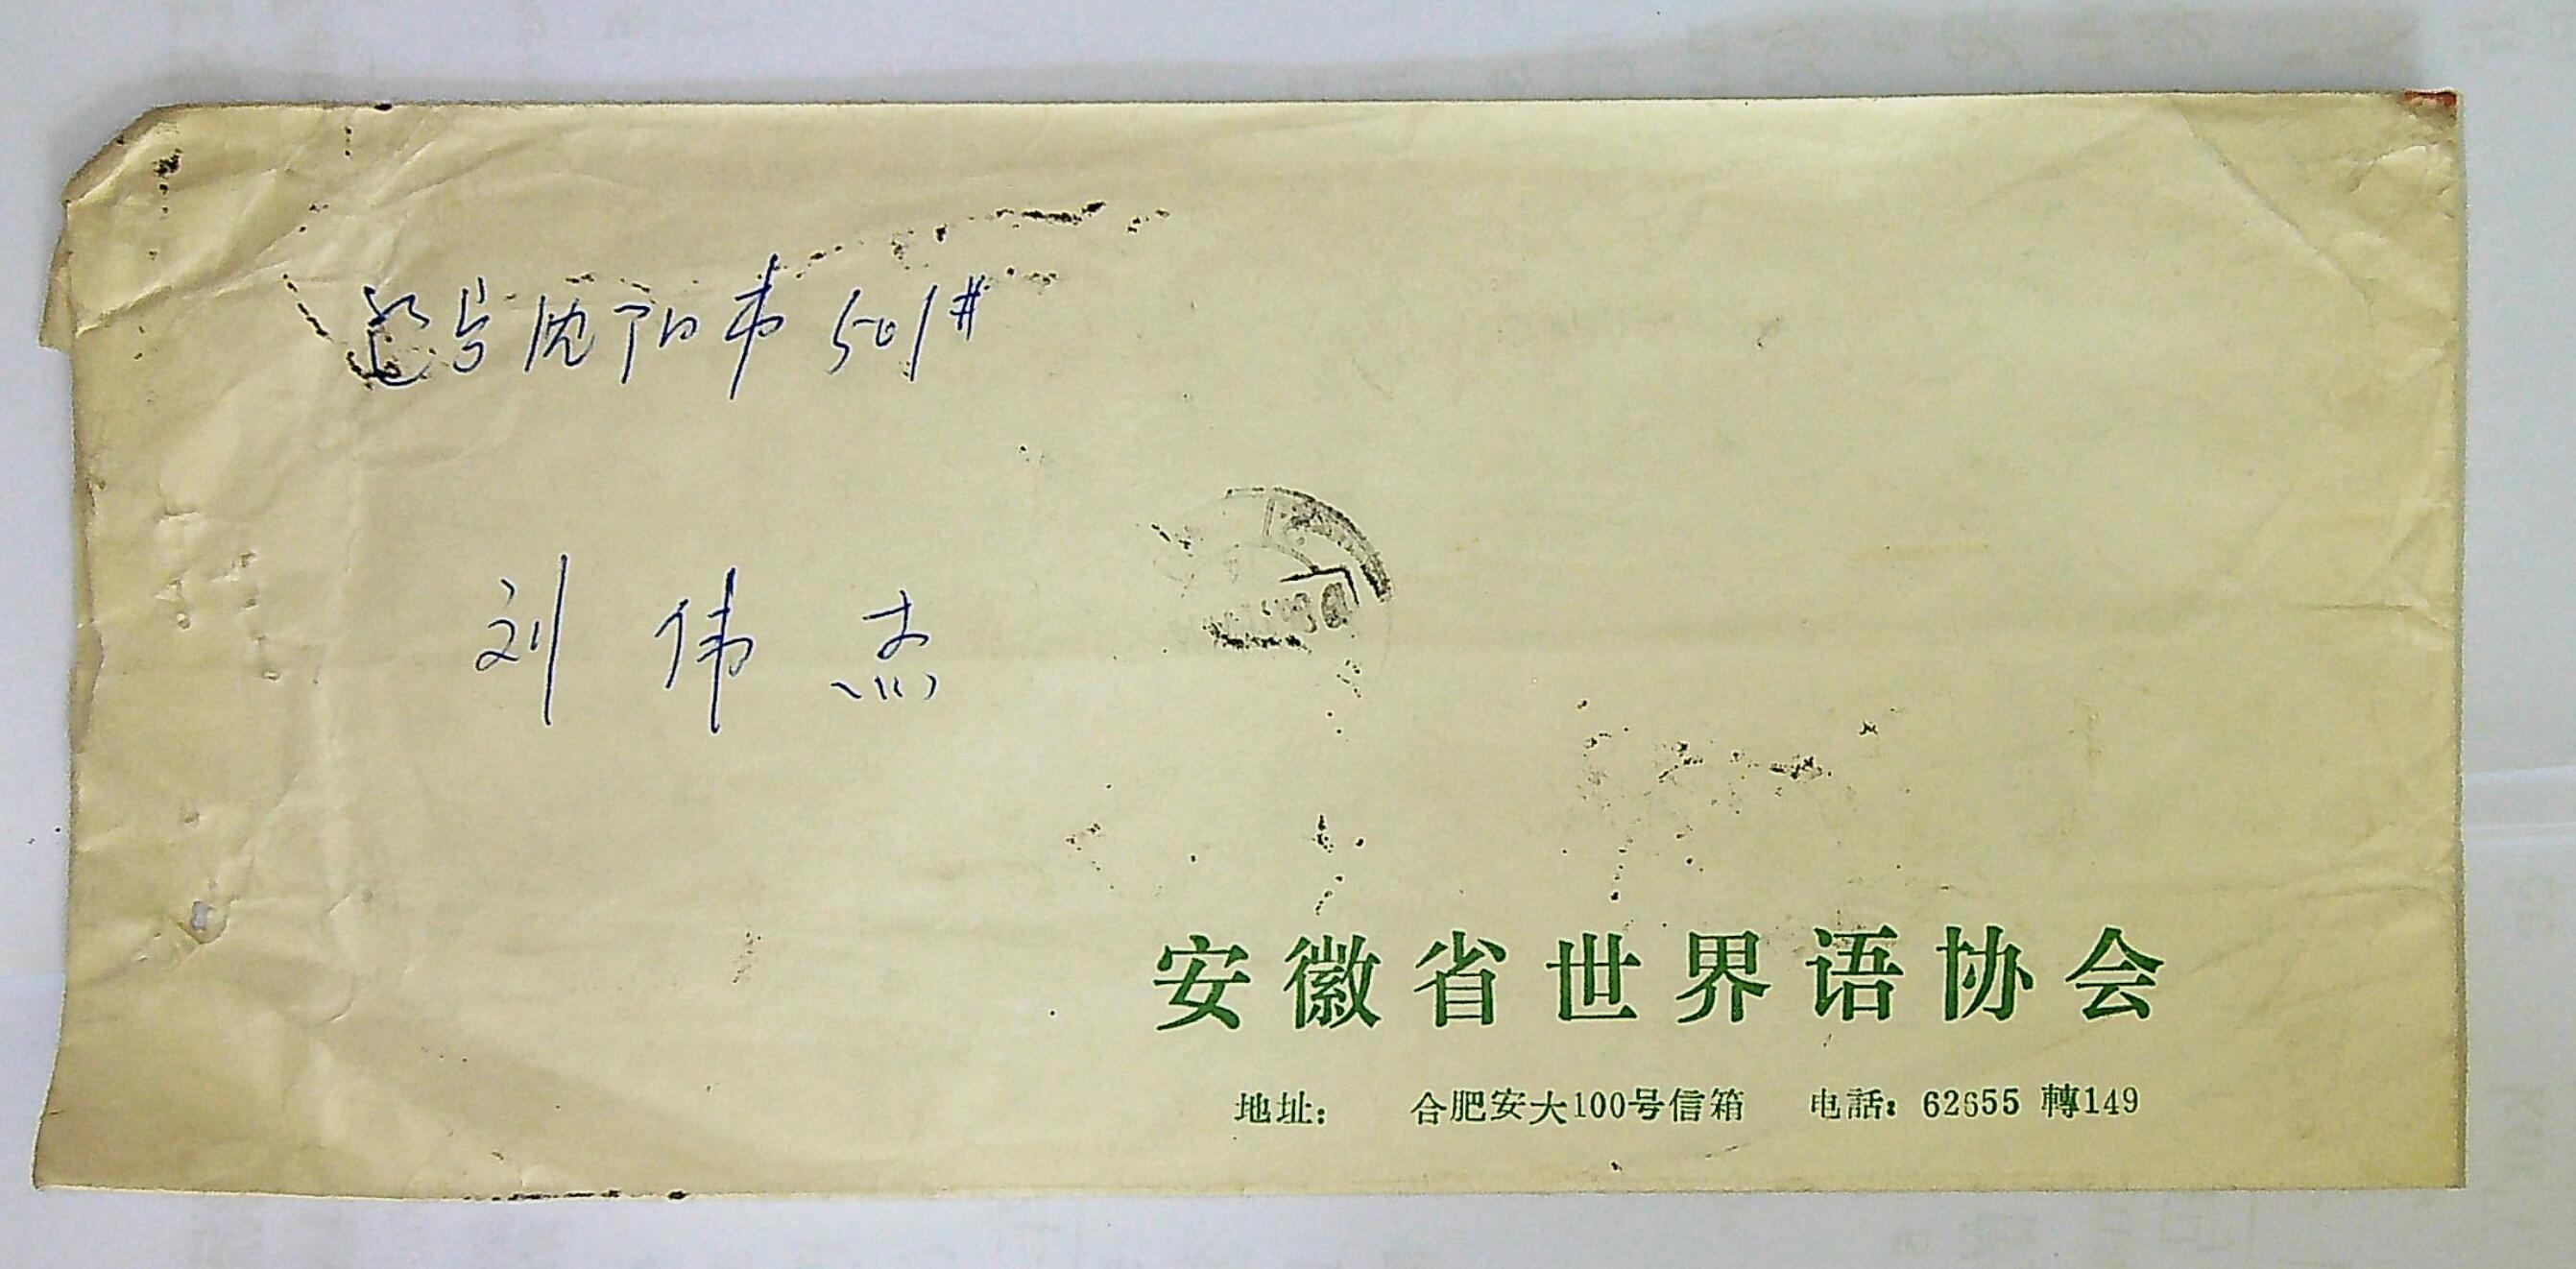 辽宁沈阳市501#
刘伟杰
安徽省世界语协会
地址: 合肥安大100号信箱 电話: 62655 轉149